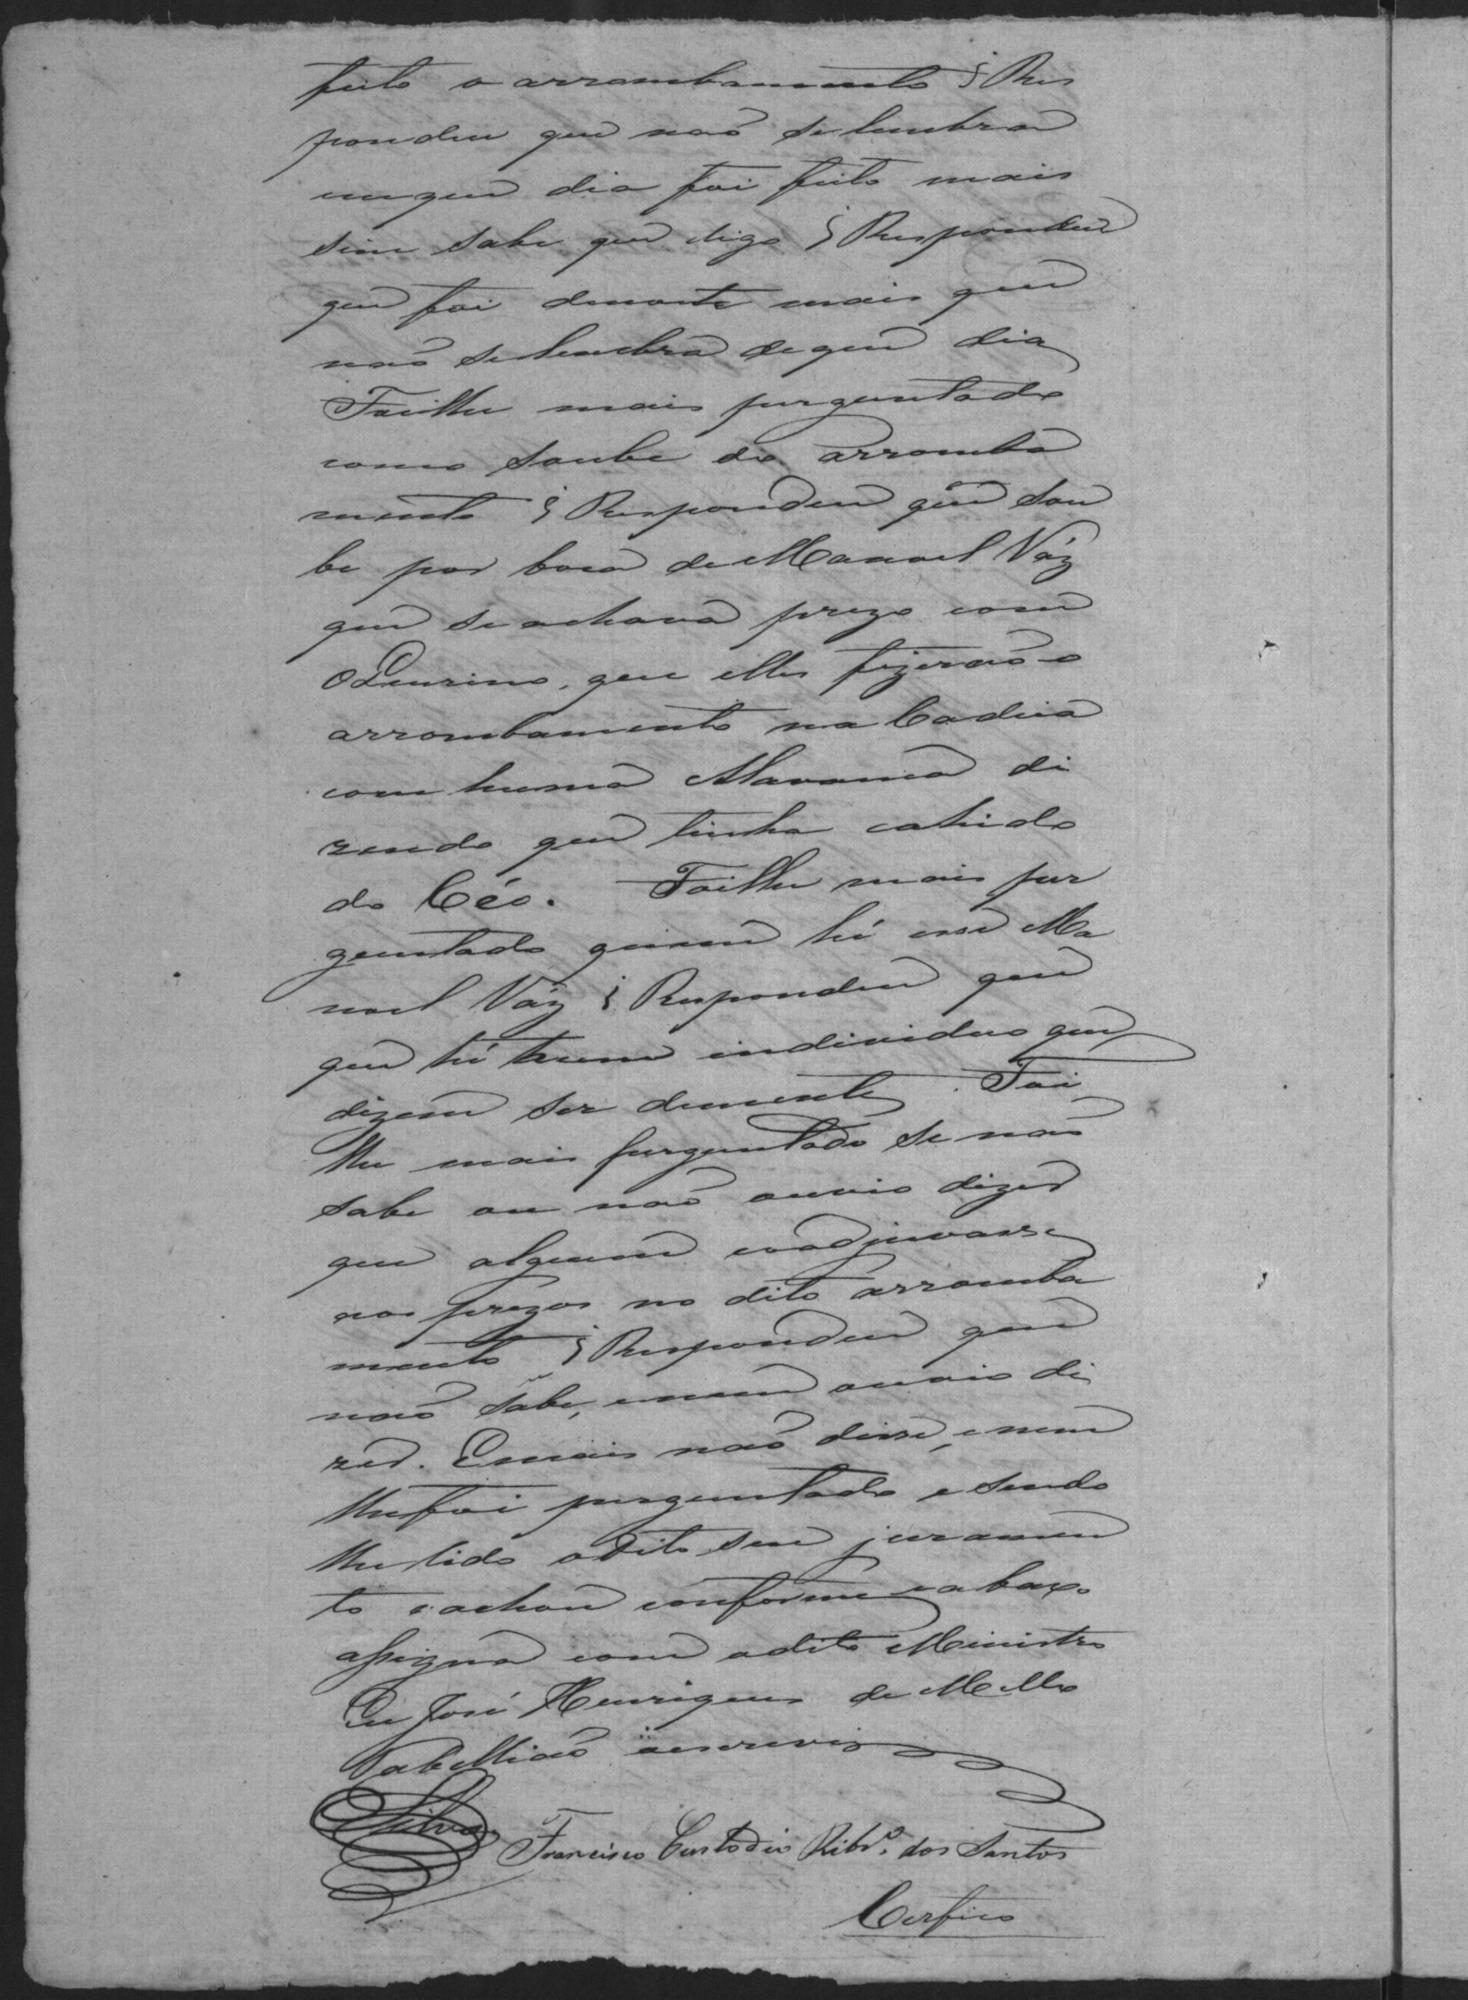 feito o arrombamento § Res
pondeu que naõ selembra
emque dia foi feito mais
sim sabe que digo § Respondeu
que foi denoite mais que
naõ selembra deque dia
Foilhe mais perguntado
como soube do arromba
mento § Respondeu que sou
be por boca de Manoel Váz
que seachava prezo com
o Leurino, que elles fizeraõ o
arrombamento na Cadeia
com huma Alavanca di
zendo que tinha cahido
do Céo. Foilhe mais per
guntado quem hé esse Ma
noel Váz § Respondeu que
que hé hum individuo que
dizem ser demente. Foi
lhe mais perguntado se naõ
sabe ou naõ ouvio dizer
que alguem coadjuvasse
aos prezos no dito arromba
mento § Respondeu que
naõ sabe, enem ouvio di
zer. Emais naõ disse, enem
lhefoi perguntado e sendo
lhe lido odito seu juramen
to eachou conforme eabaxo
assigna com odito Ministro
Eu José Henriques de Mello
Tabelliaõ oescrevi
Silva.
Francisco Custodio Ribrº. dos Santos
Certifico